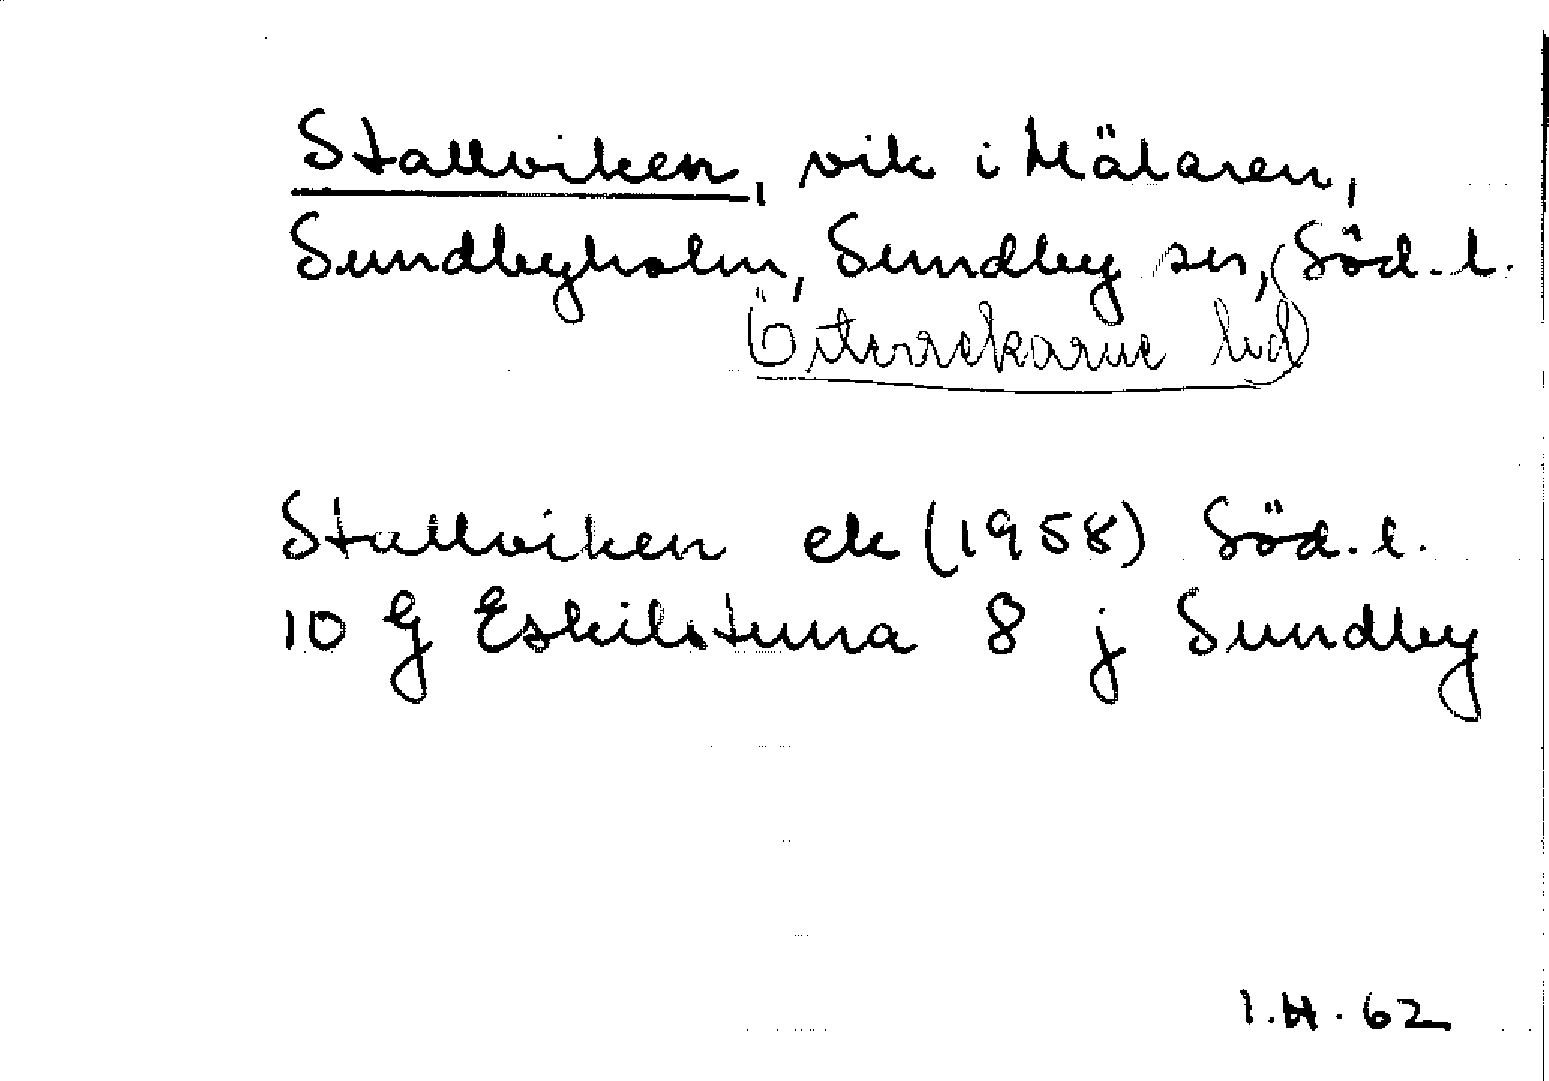 Stallviken, vik i Mälaren,
Sundbyholm, Sundby sn, Söd. l.
Österrekarne hd
Stallviken ek (1958) Söd. l.
10 G Eskilstuna 8 j Sundby
I.H. 62